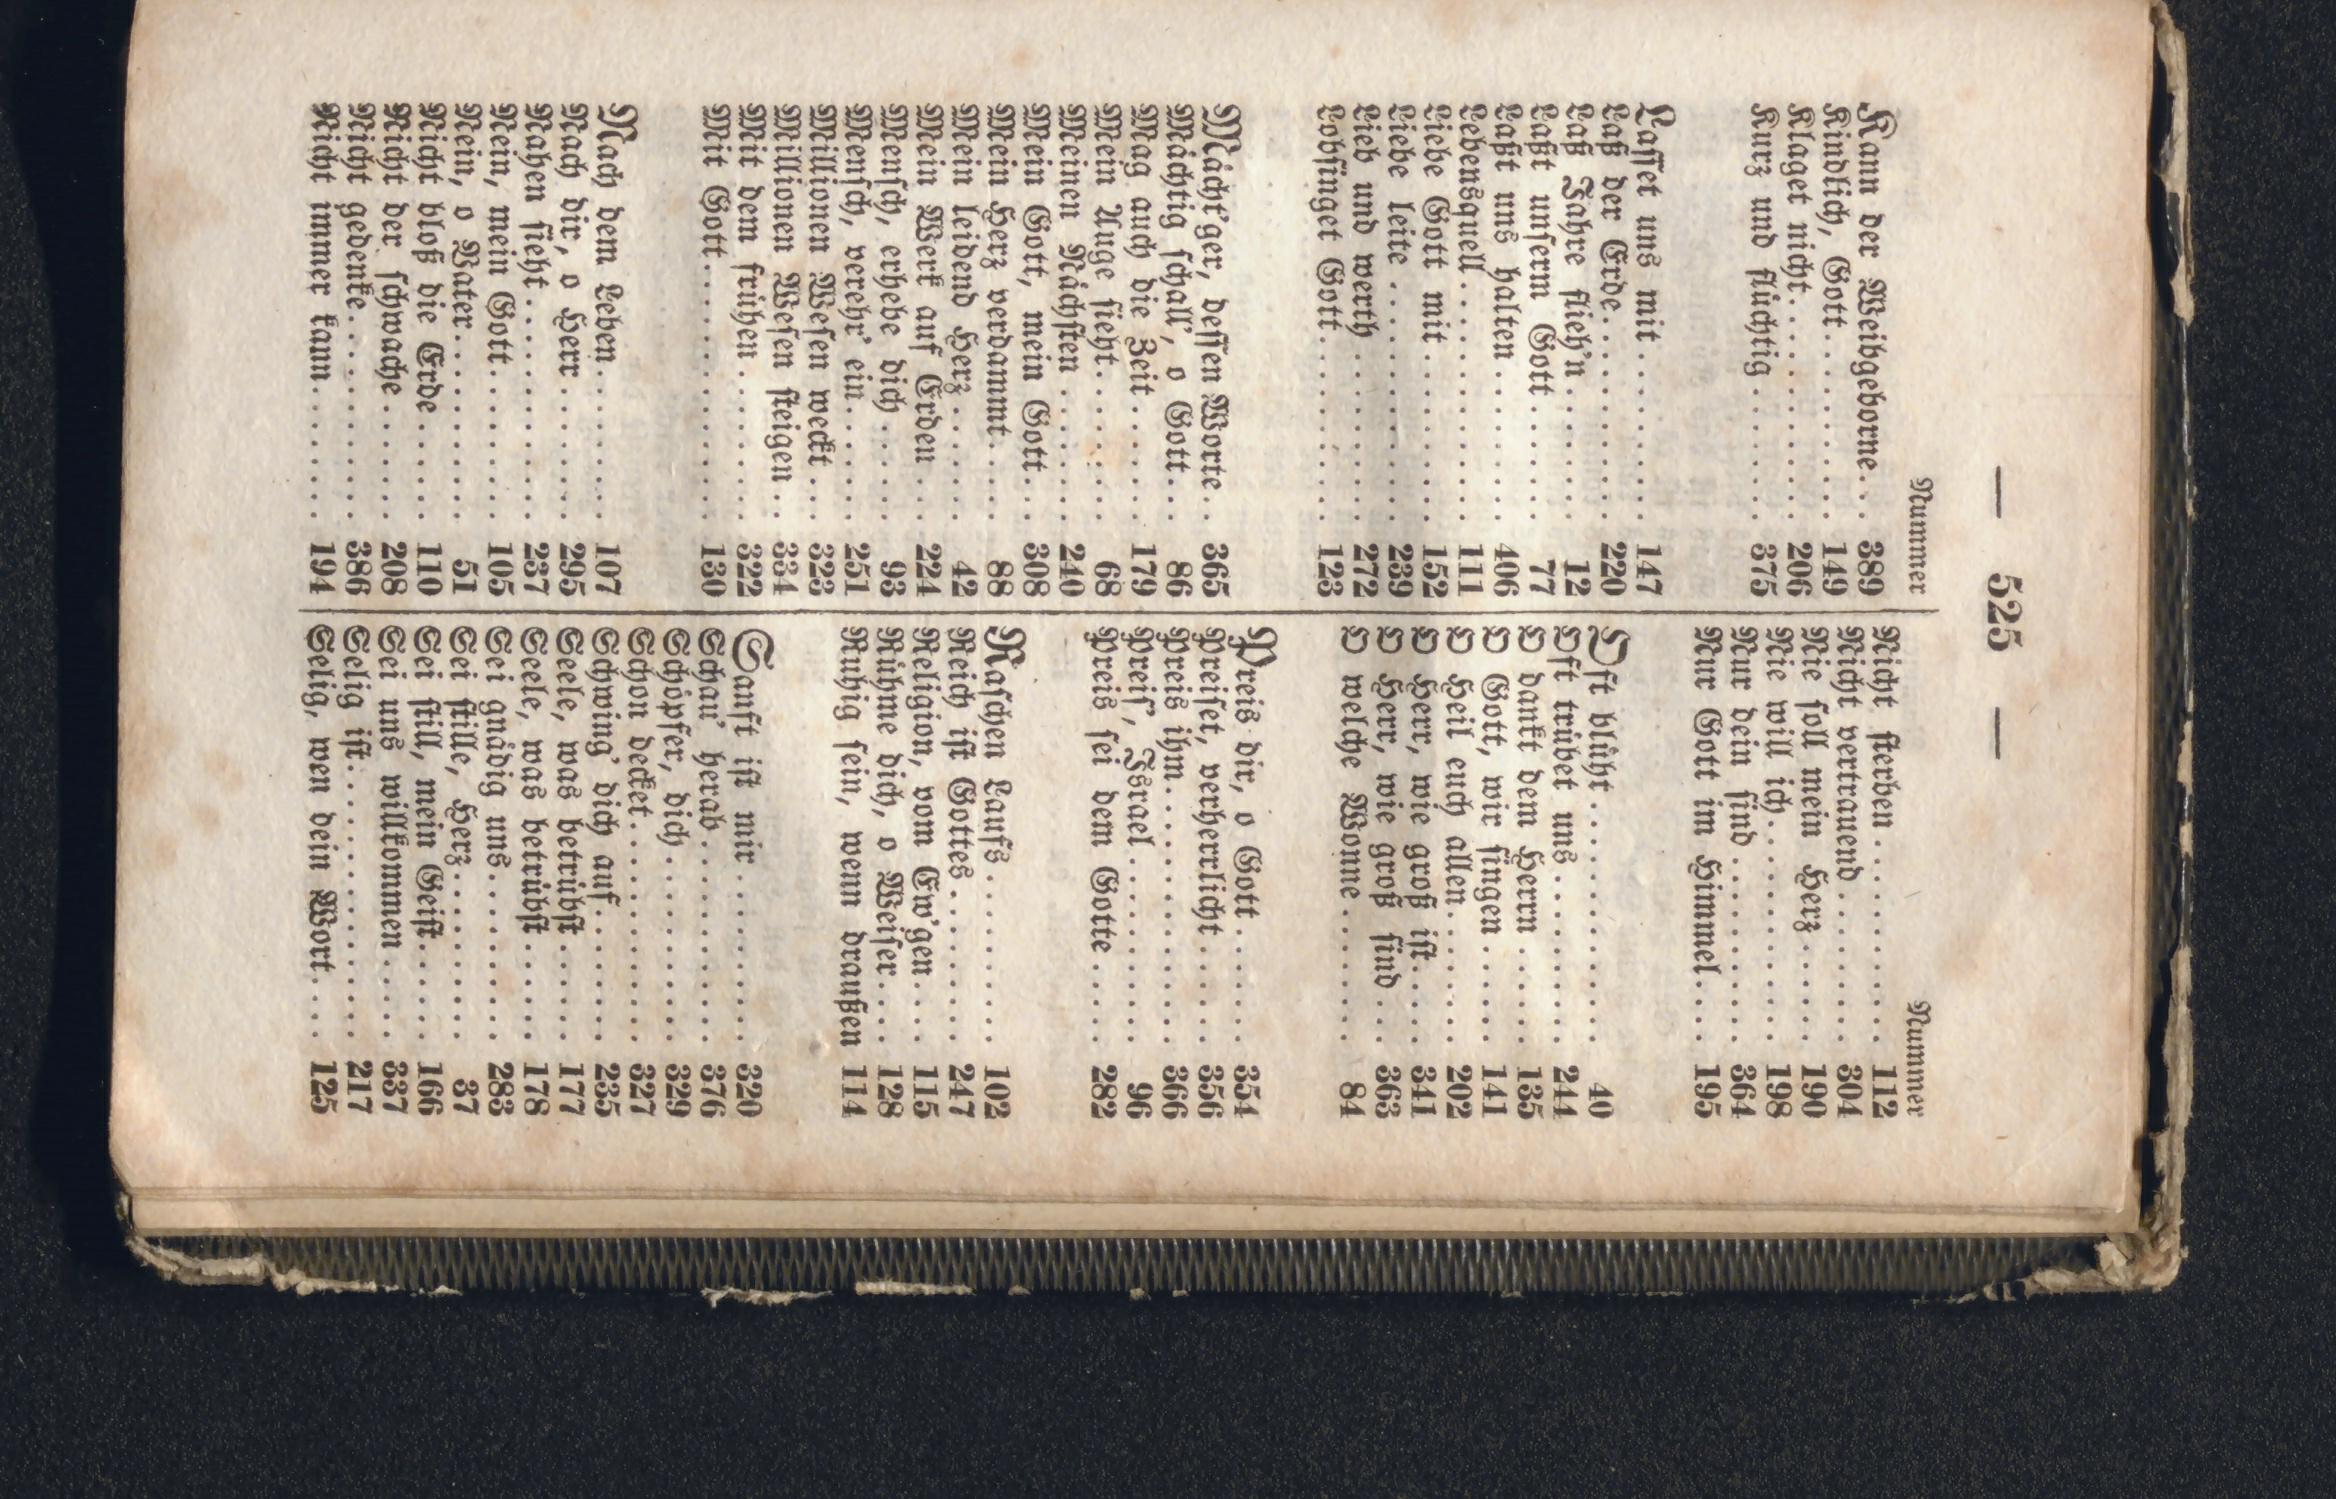 — 525 —
Nummer
Kann der Weibgeborne... 389
Kindlich, Gott.......... 149
Klaget nicht............ 206
Kurz und flüchtig....... 375
Lasset uns mit.......... 147
Laß der Erde............ 220
Laß Jahre flieh'n....... 12
Laßt unserm Gott........ 77
Laßt uns halten......... 406
Lebensquell............. 111
Liebe Gott mit.......... 152
Liebe leite............. 239
Lieb und werth.......... 272
Lobsinget Gott.......... 123
Mächt'ger, dessen Worte.. 365
Mächtig schall', o Gott... 86
Mag auch die Zeit....... 179
Mein Auge sieht......... 68
Meinen Nächsten......... 240
Mein Gott, mein Gott... 308
Mein Herz verdammt..... 88
Mein leidend Herz....... 42
Mein Werk auf Erden... 224
Mensch, erhebe dich...... 93
Mensch, verehr' ein...... 251
Millionen Wesen weckt... 323
Millionen Wesen steigen.. 334
Mit dem frühen......... 322
Mit Gott............... 130
Nach dem Leben......... 107
Nach dir, o Herr........ 295
Nahen sieht............. 237
Nein, mein Gott......... 105
Nein, o Vater........... 51
Nicht bloß die Erde...... 110
Nicht der schwache....... 208
Nicht gedenke........... 386
Nicht immer kann....... 194
Nummer
Nicht sterben........... 112
Nicht vertrauend........ 304
Nie soll mein Herz...... 190
Nie will ich............. 198
Nur dein sind........... 364
Nur Gott im Himmel.... 195
Oft blüht.............. 40
Oft trübet uns.......... 244
O dankt dem Herrn..... 135
O Gott, wir singen...... 141
O Heil euch allen........ 202
O Herr, wie groß ist..... 341
O Herr, wie groß sind... 363
O welche Wonne........ 84
Preis dir, o Gott........ 354
Preiset, verherrlicht...... 356
Preis ihm.............. 366
Preis', Israel........... 96
Preis sei dem Gotte..... 282
Raschen Laufs.......... 102
Reich ist Gottes......... 247
Religion, vom Ew'gen.... 115
Rühme dich, o Weiser.... 128
Ruhig sein, wenn draußen 114
Sanft ist mir........... 320
Schau' herab............ 376
Schöpfer, dich........... 329
Schon decket............ 327
Schwing' dich auf........ 235
Seele, was betrübst...... 177
Seele, was betrübst...... 178
Sei gnädig uns.......... 283
Sei stille, Herz.......... 37
Sei still, mein Geist...... 166
Sei uns willkommen..... 337
Selig ist................ 217
Selig, wen dein Wort.... 125